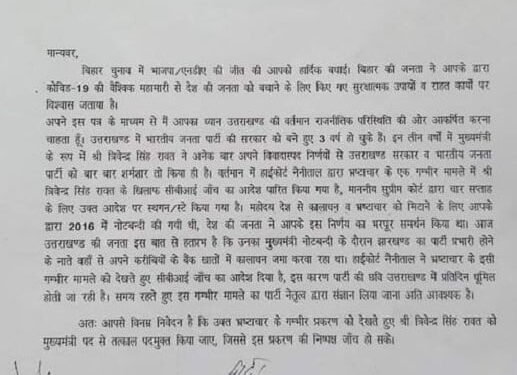 मान्यवर,
बिहार चुनाव में भाजपा/एनडीए की जीत की आपको हार्दिक बधाई। बिहार की जनता ने आपके द्वारा
कोविड-19 की वैश्विक महामारी से देश की जनता को बचाने के लिए किए गए सुरक्षात्मक उपायों व राहत कार्यों पर
विश्वास जताया है।
अपने इस पत्र के माध्यम से में आपका ध्यान उत्तराखण्ड की वर्तमान राजनीतिक परिस्थिति की ओर आकर्षित करना
चाहता हूँ। उत्तराखण्ड में भारतीय जनता पार्टी की सरकार को बने हुए 3 वर्ष हो चुके हैं। इन तीन वर्षों में मुख्यमंत्री
के रूप में श्री त्रिवेन्द्र सिंह रावत ने अनेक बार अपने विवादास्पद निर्णयों से उत्तराखण्ड सरकार व भारतीय जनता
पार्टी को बार बार शर्मशार तो किया ही है। वर्तमान में हाईकोर्ट नैनीताल द्वारा भ्रष्टाचार के एक गम्भीर मामले में श्री
त्रिवेन्द्र सिंह रावत के खिलाफ सीबीआई जाँच का आदेश पारित किया गया है, माननीय सुप्रीम कोर्ट द्वारा चार सप्ताह
के लिए उक्त आदेश पर स्थगन/स्टे किया गया है। महोदय देश से कालाधन व भ्रष्टाचार को मिटाने के लिए आपके
द्वारा 2016 में नोटबन्दी की गयी थी, देश की जनता ने आपके इस निर्णय का भरपूर समर्थन किया था। आज
उत्तराखण्ड की जनता इस बात से हतप्रभ है कि उनका मुख्यमंत्री नोटबन्दी के दौरान झारखण्ड का पार्टी प्रभारी होने
के नाते वहाँ से अपने करीबियों के बैंक खातों में कालाधन जमा करवा रहा था। हाईकोर्ट नैनीताल ने भ्रष्टाचार के इसी
गम्भीर मामले को देखते हुए सीबीआई जाँच का आदेश दिया है, इस कारण पार्टी की छवि उत्तराखण्ड में प्रतिदिन धूमिल
होती जा रही है। समय रहते हुए इस गम्भीर मामले का पार्टी नेतृत्व द्वारा संज्ञान लिया जाना अति आवश्यक है।
अतः आपसे विनम्र निवेदन है कि उक्त भ्रष्टाचार के गम्भीर प्रकरण को देखते हुए श्री त्रिवेन्द्र सिंह रावत को
मुख्यमंत्री पद से तत्काल पदमुक्त किया जाए, जिससे इस प्रकरण की निष्पक्ष जाँच हो सके।